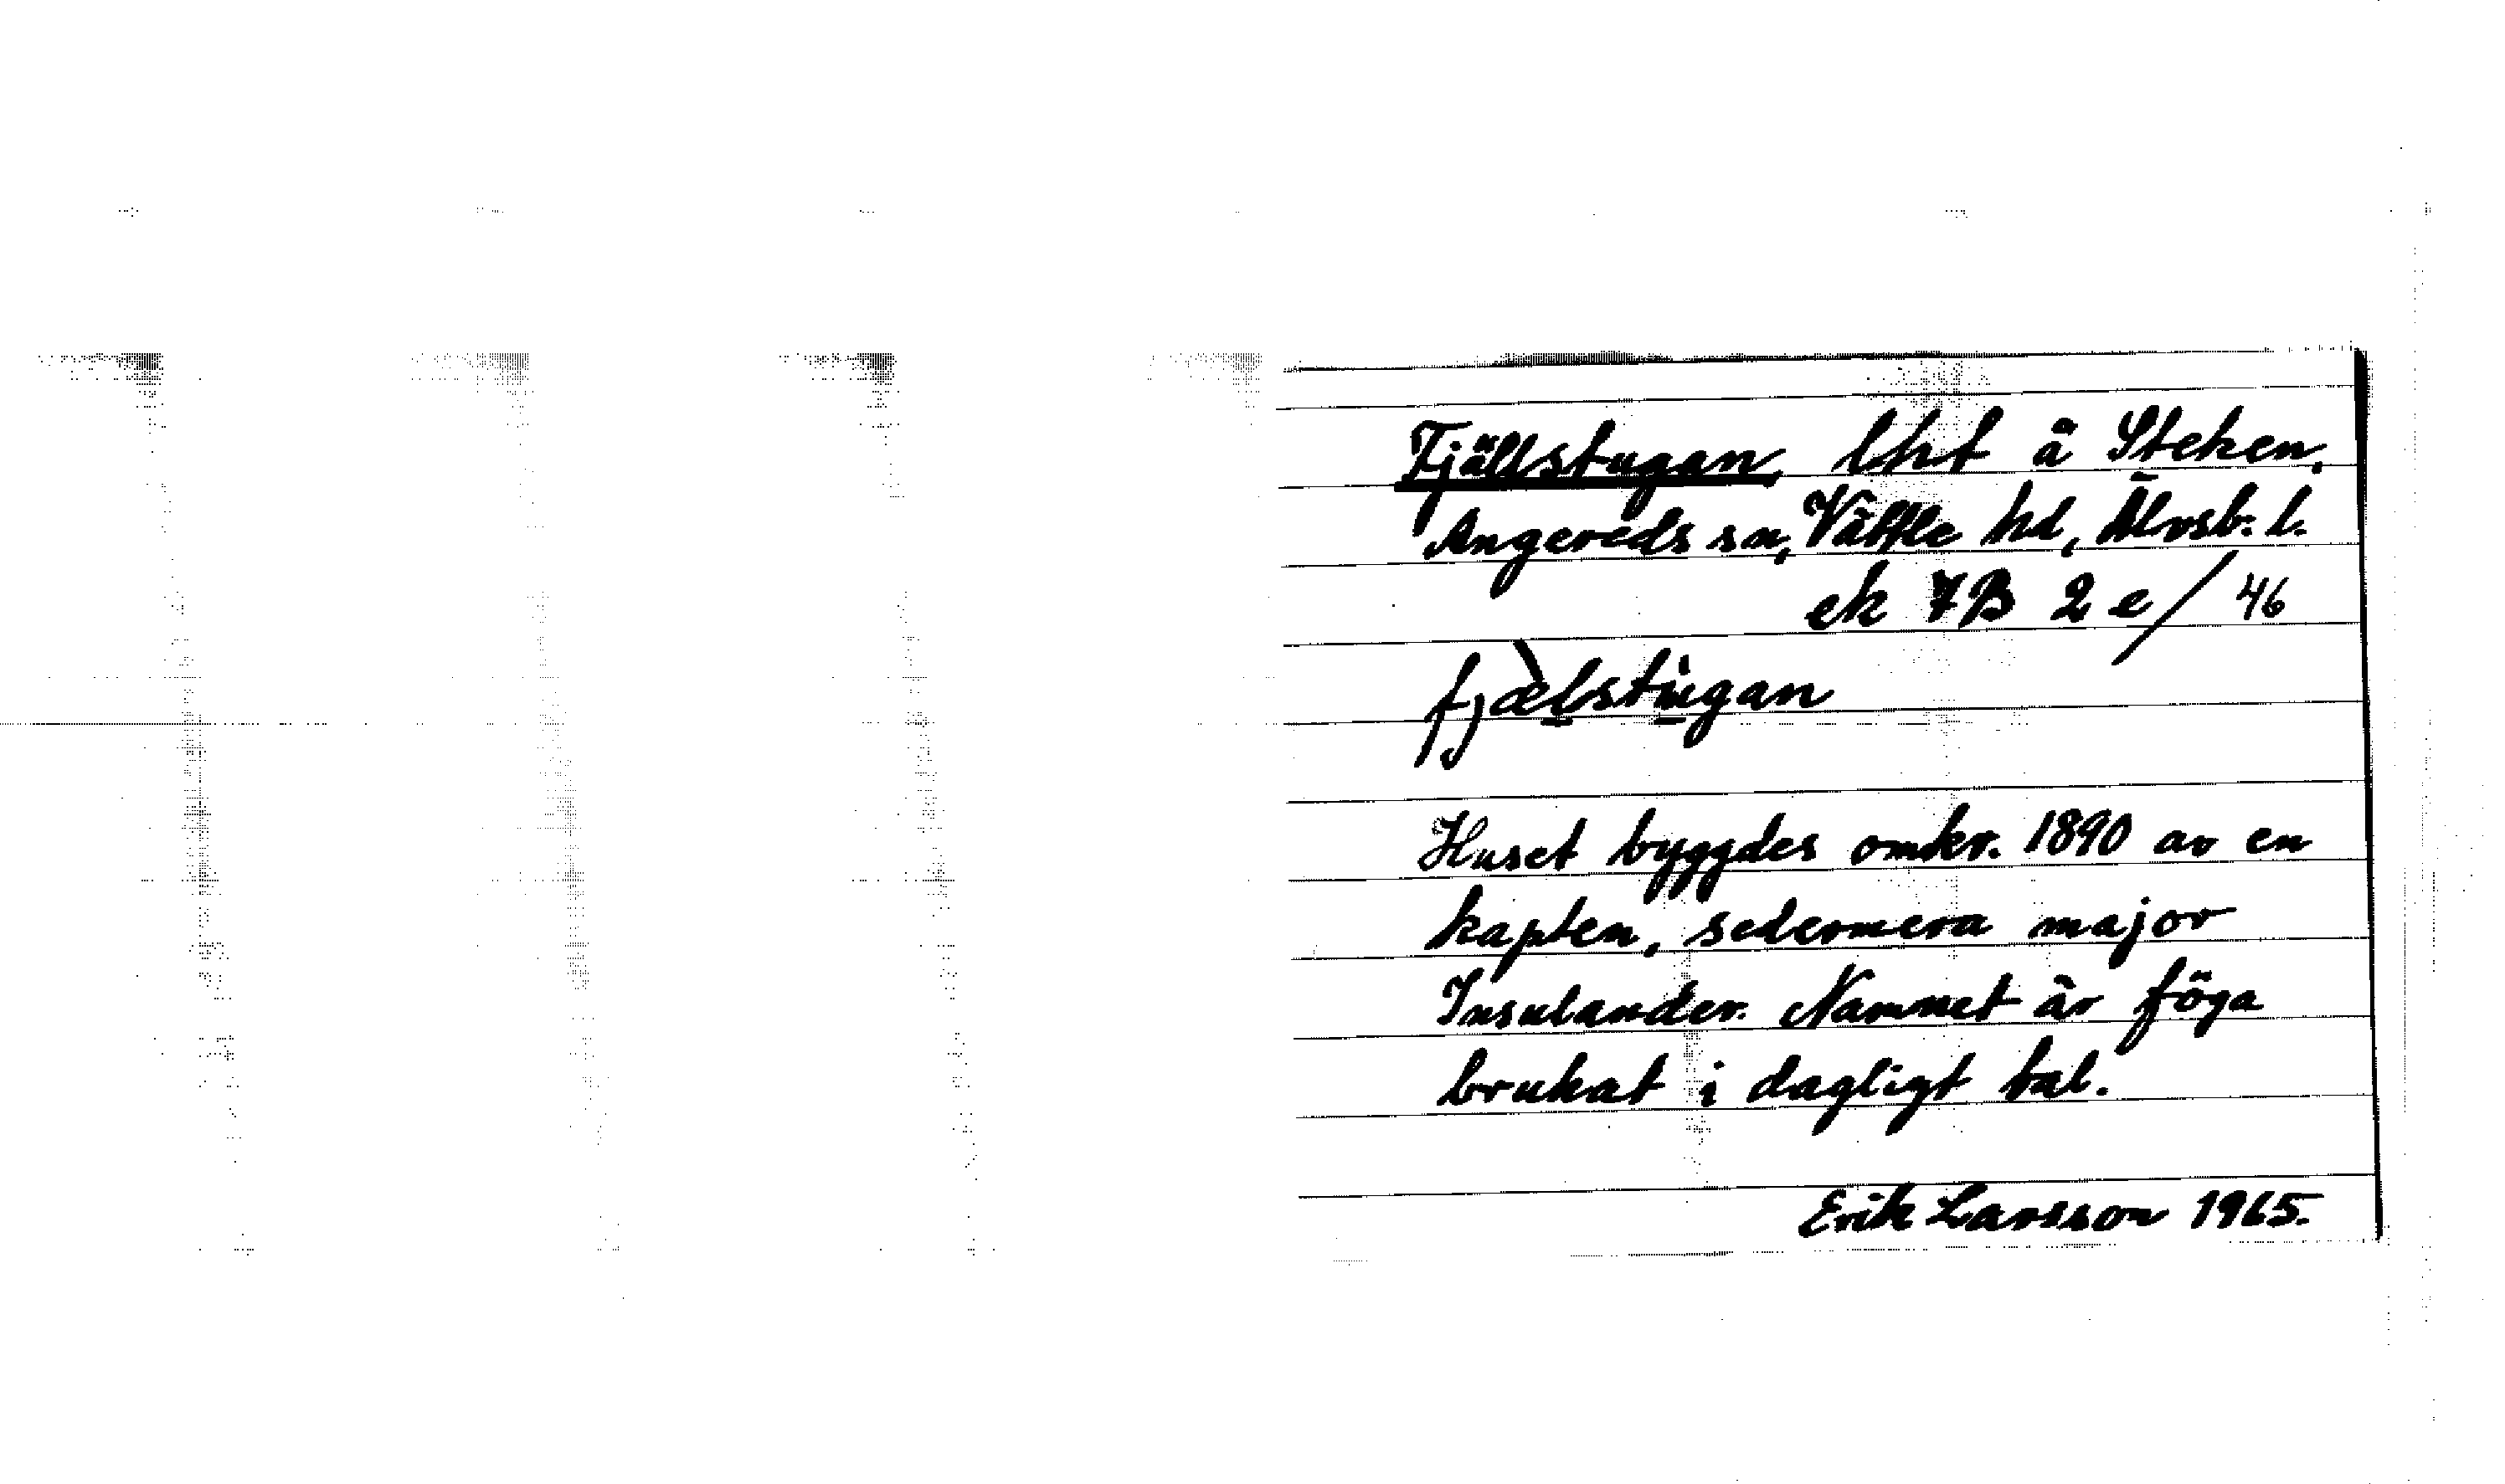 Fjällstugan, lht å Steken,
Angereds sn, Vättle hd, Älvsb. l.
ek 7B 2 e/46
fjælstugan
Huset byggdes omkr. 1890 av en
kapten, sedermera major
Insulander. Namnet är föga
brukat i dagligt tal.
Erik Larsson 1965.